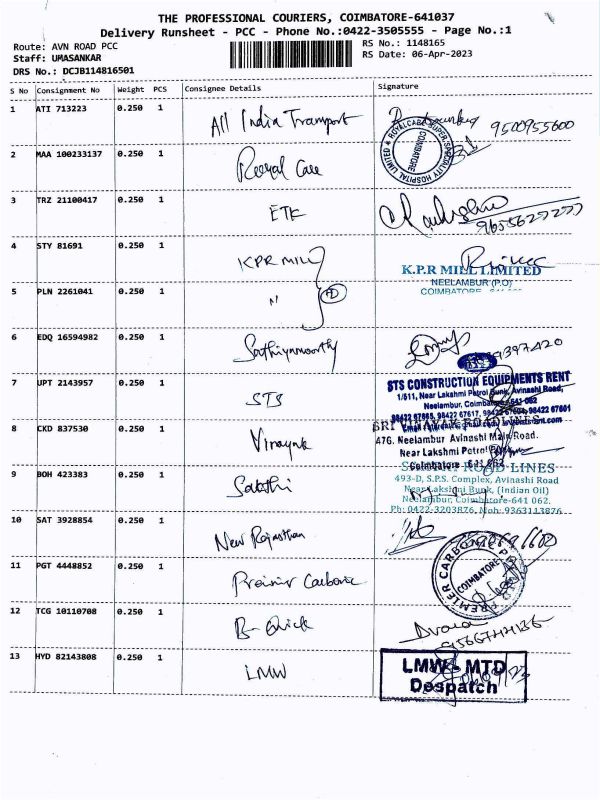 THE PROFESSIONAL COURIERS, COIMBATORE-641037
Delivery Runsheet - PCC - Phone No.:0422-3505555 - Page No.:1
Route: AVN ROAD PCC
RS No.: 1148165
Staff: UMASANKAR
RS Date: 06-Apr-2023
DRS No.: DCJB114816501
S No Consignment No Weight PCS Consignee Details Signature
1 ATI 713223 0.250 1 All India Transport 9500955600
ROYALCARE SUPER SPECIALITY HOSPITAL LIMITED
COIMBATORE
2 MAA 100233137 0.250 1 Royal Care
3 TRZ 21100417 0.250 1 ETK
4 STY 81691 0.250 1 KPR MILL
K.P.R MILL LIMITED
NEELAMBUR (P.O)
5 PLN 2261041 0.250 1 "
6 EDQ 16594982 0.250 1 Sathiyamoorthy
7 UPT 2143957 0.250 1 STS
STS CONSTRUCTION EQUIPMENTS RENT
1/511, Near Lakshmi Petrol Bunk, Avinashi Road,
Neelambur, Coimbatore 641 062
8 CKD 837530 0.250 1 Vinayak
SRI VINAYAK ROADLINES
476. Neelambur Avinashi Main Road.
Near Lakshmi Petrol Bunk,
Coimbatore
9 BOH 423383 0.250 1 Sakthi
ROAD LINES
493-D, S.P.S. Complex, Avinashi Road
Near Lakshmi Bunk, (Indian Oil)
Neelambur, Coimbatore-641 062.
Ph: 0422-3203876, Moh: 9363113876
10 SAT 3928854 0.250 1 New Rajasthan
11 PGT 4448852 0.250 1 Premier Carbonic
PREMIER CARBONIC
COIMBATORE
12 TCG 10110708 0.250 1 B-Quick
13 HYD 82143808 0.250 1 LMW
LMW - MTD
Despatch